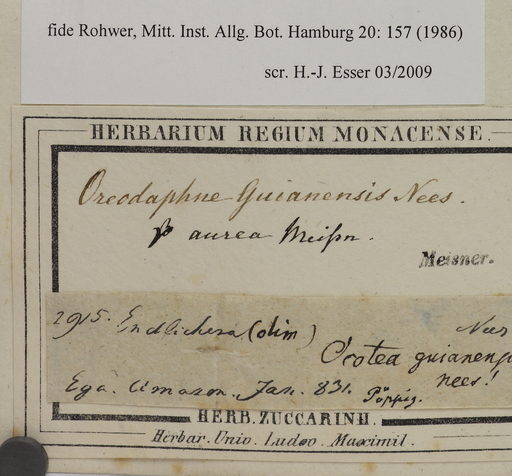 fide Rohwer, Mitt. Inst. Allg. Bot. Hamburg 20: 157 (1986)
scr. H.-J. Esser 03/2009
HERBARIUM REGIUM MONACENSE.
Oreodaphne Guianensis Nees.
β aurea Meißn.
Meisner.
2915. Endlichera (olim) Nees
Ocotea guianensis
nees!
Ega. Amazon. Jan. 831. Pöppig.
HERB. ZUCCARINII.
Herbar. Univ. Ludov. Maximil.